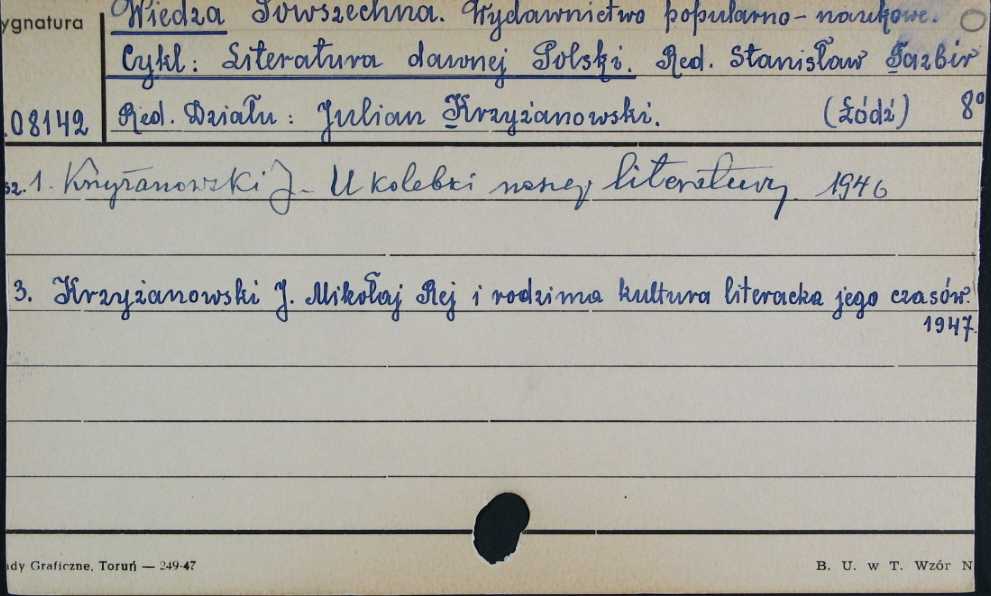 ygnatura
Wiedza Powszechna. Wydawnictwo popularno-naukowe.
Cykl: Literatura dawnej Polski. Red. Stanisław Tazbir
.08142 Red. Działu: Julian Krzyżanowski. (Łódź) 8°
sz. 1. Krzyżanowski J. U kolebki naszej literatury 1946
3. Krzyżanowski J. Mikołaj Rej i rodzima kultura literacka jego czasów.
1947.
ady Graficzne, Toruń — 249-47
B. U. w T. Wzór N